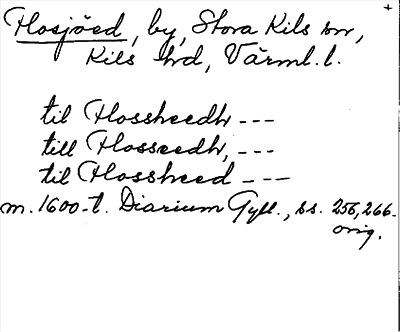 +
Hosjöed, by, Stora Kils sn,
Kils hd, Värml. l.
til Hossheedh ---
till Hosseedh, ---
til Hossheed ---
m. 1600-t. Diarium Gyll., ss. 256, 266.
orig.